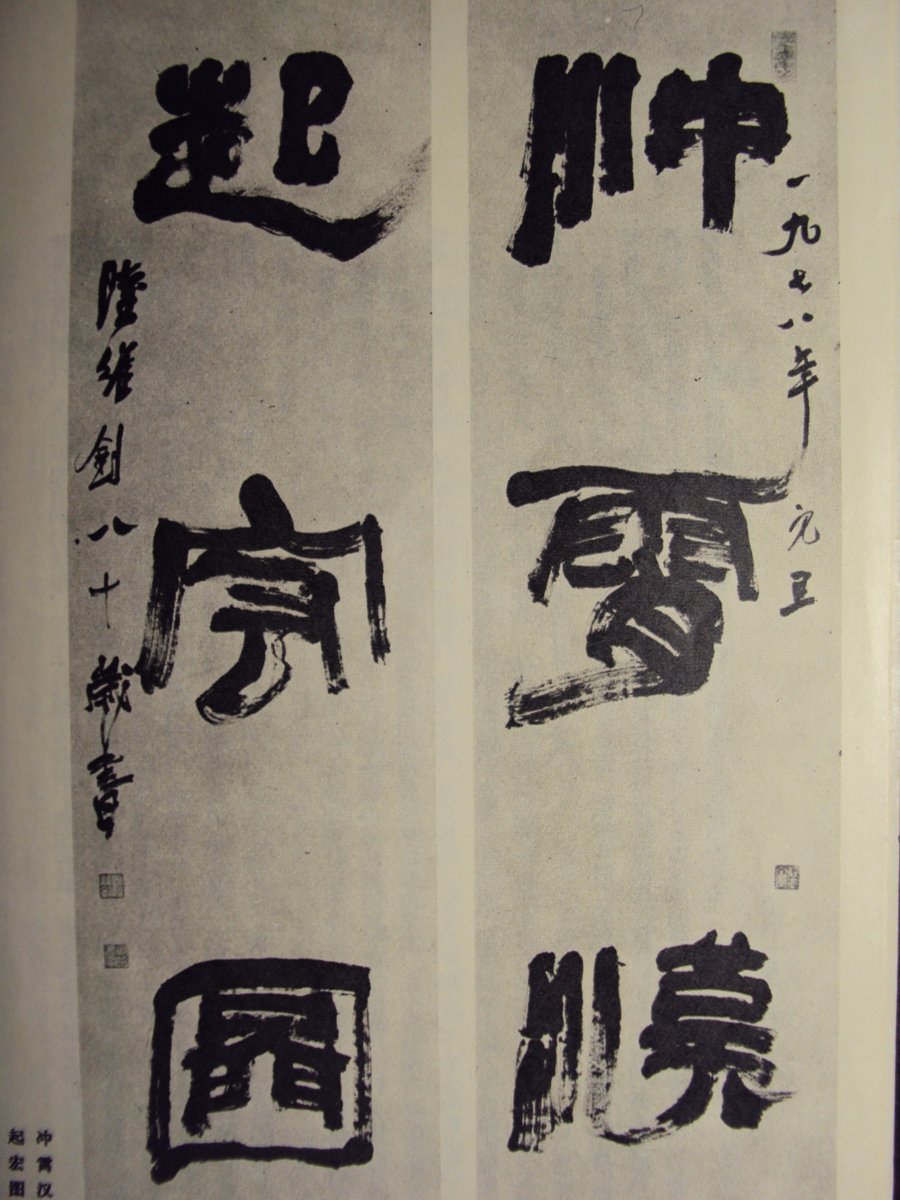 一九七八年元旦
沖霄漢
起宏圖
陸維釗八十歲書
冲霄汉
起宏图